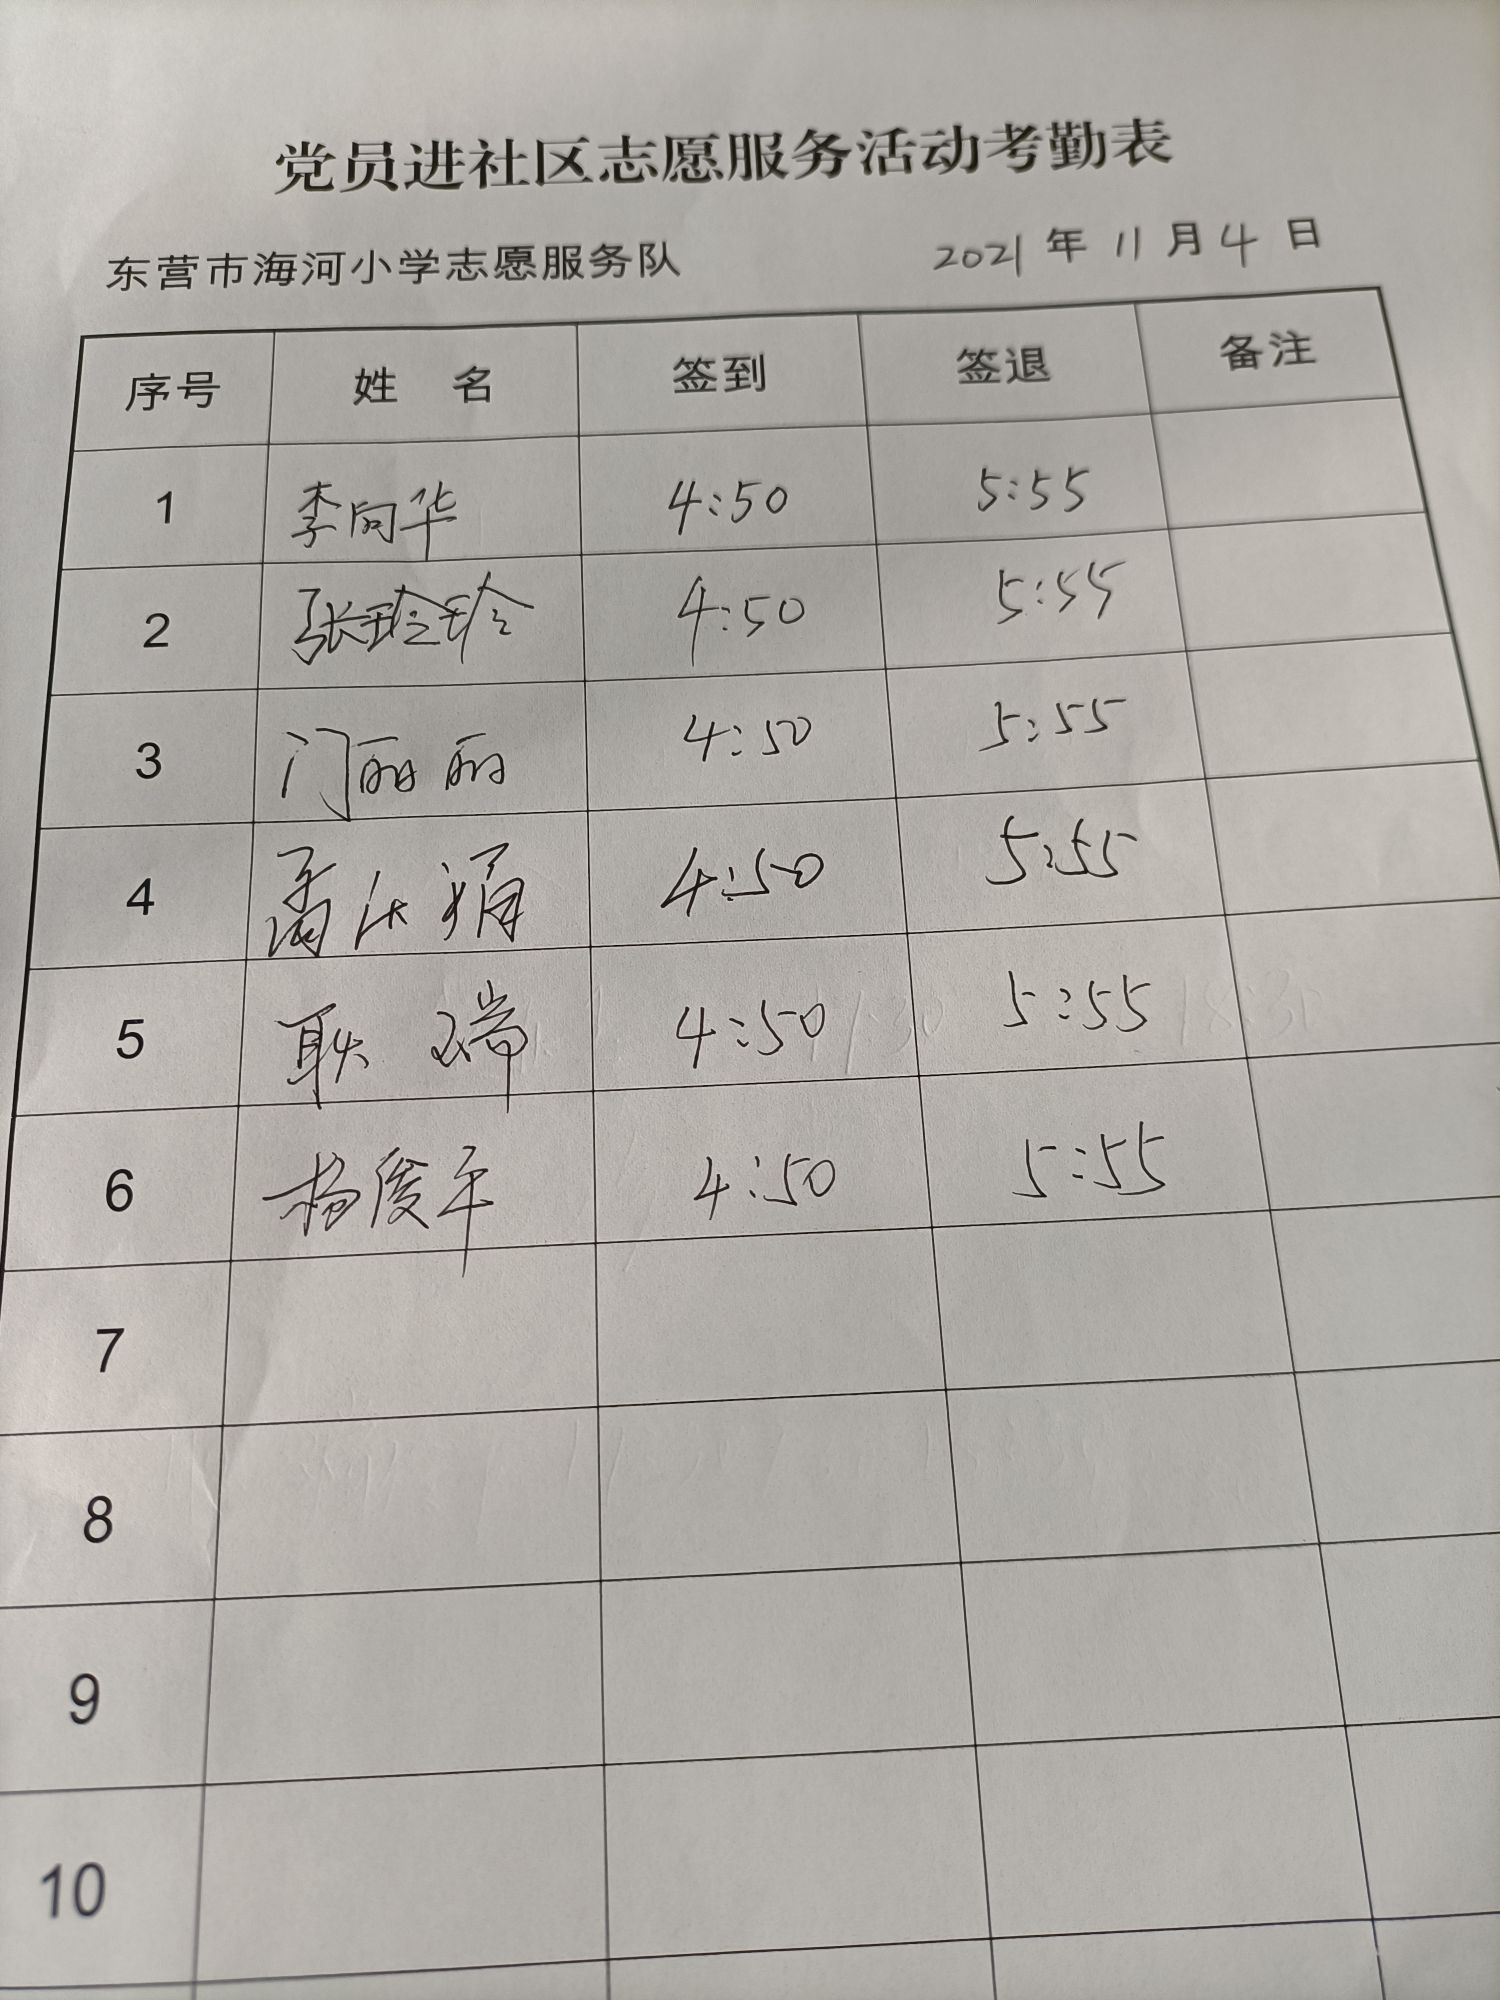 党员进社区志愿服务活动考勤表
东营市海河小学志愿服务队 2021年11月4日
序号 姓名 签到 签退 备注
1 李向华 4:50 5:55
2 张玲玲 4:50 5:55
3 门丽丽 4:50 5:55
4 4:50 5:55
5 耿瑞 4:50 5:55
6 杨俊平 4:50 5:55
7
8
9
10